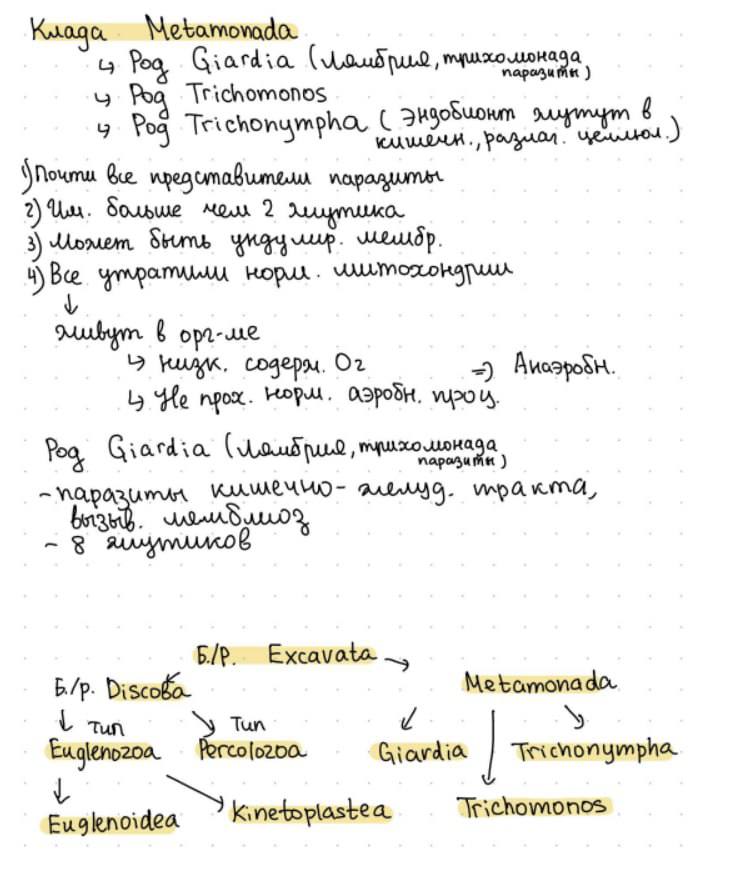 Клада Metamonada
↳ Род Giardia (Лямблия, трихомонада
паразиты)
↳ Род Trichomonos
↳ Род Trichonympha (эндобионт жгутут в
кишечн., разлаг. целлюл.)
1) Почти все представители паразиты
2) Им. больше чем 2 жгутика
3) Может быть ундулир. мембр.
4) Все утратили норм. митохондрии
↓
живут в орг-ме
↳ низк. содерж. O2 => Анаэробн.
↳ Не прох. норм. аэробн. проц.
Род Giardia (Лямблия, трихомонада
паразиты)
- паразиты кишечно-желуд. тракта,
вызыв. лямблиоз
- 8 жгутиков
Б./р. Excavata →
Б./р. Discoba Metamonada
↓ Тип ↘ Тип
Euglenozoa Percolozoa Giardia Trichonympha
Euglenoidea Kinetoplastea Trichomonos